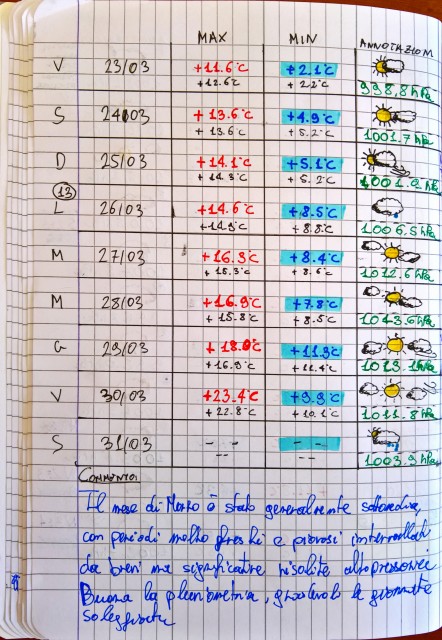 MAX MIN ANNOTAZIONI
V 23/03 +11.6°C +2.1°C
+12.6°C +2.2°C 998,8 hPa
S 24/03 +13.6°C +4.9°C
+13.6°C +5.2°C 1001.7 hPa
D 25/03 +14.1°C +5.1°C
+14.3°C +5.2°C 1001.2 hPa
13
L 26/03 +14.6°C +8.5°C
+14.9°C +8.8°C 1006.5 hPa
M 27/03 +16.3°C +8.4°C
+15.3°C +8.6°C 1012.6 hPa
M 28/03 +16.9°C +7.8°C
+15.8°C +8.5°C 1013.6 hPa
G 29/03 +18.0°C +11.3°C
+16.9°C +11.4°C 1013.1 hPa
V 30/03 +23.4°C +9.9°C
+22.8°C +10.1°C 1011.8 hPa
S 31/03 -- --
-- -- 1003.9 hPa
COMMENTO:
Il mese di Marzo è stato generalmente sottomedia,
con periodi molto freschi e piovosi intervallati
da brevi ma significative risalite altopressorie.
Buona la pluviometria, gradevoli le giornate
soleggiate